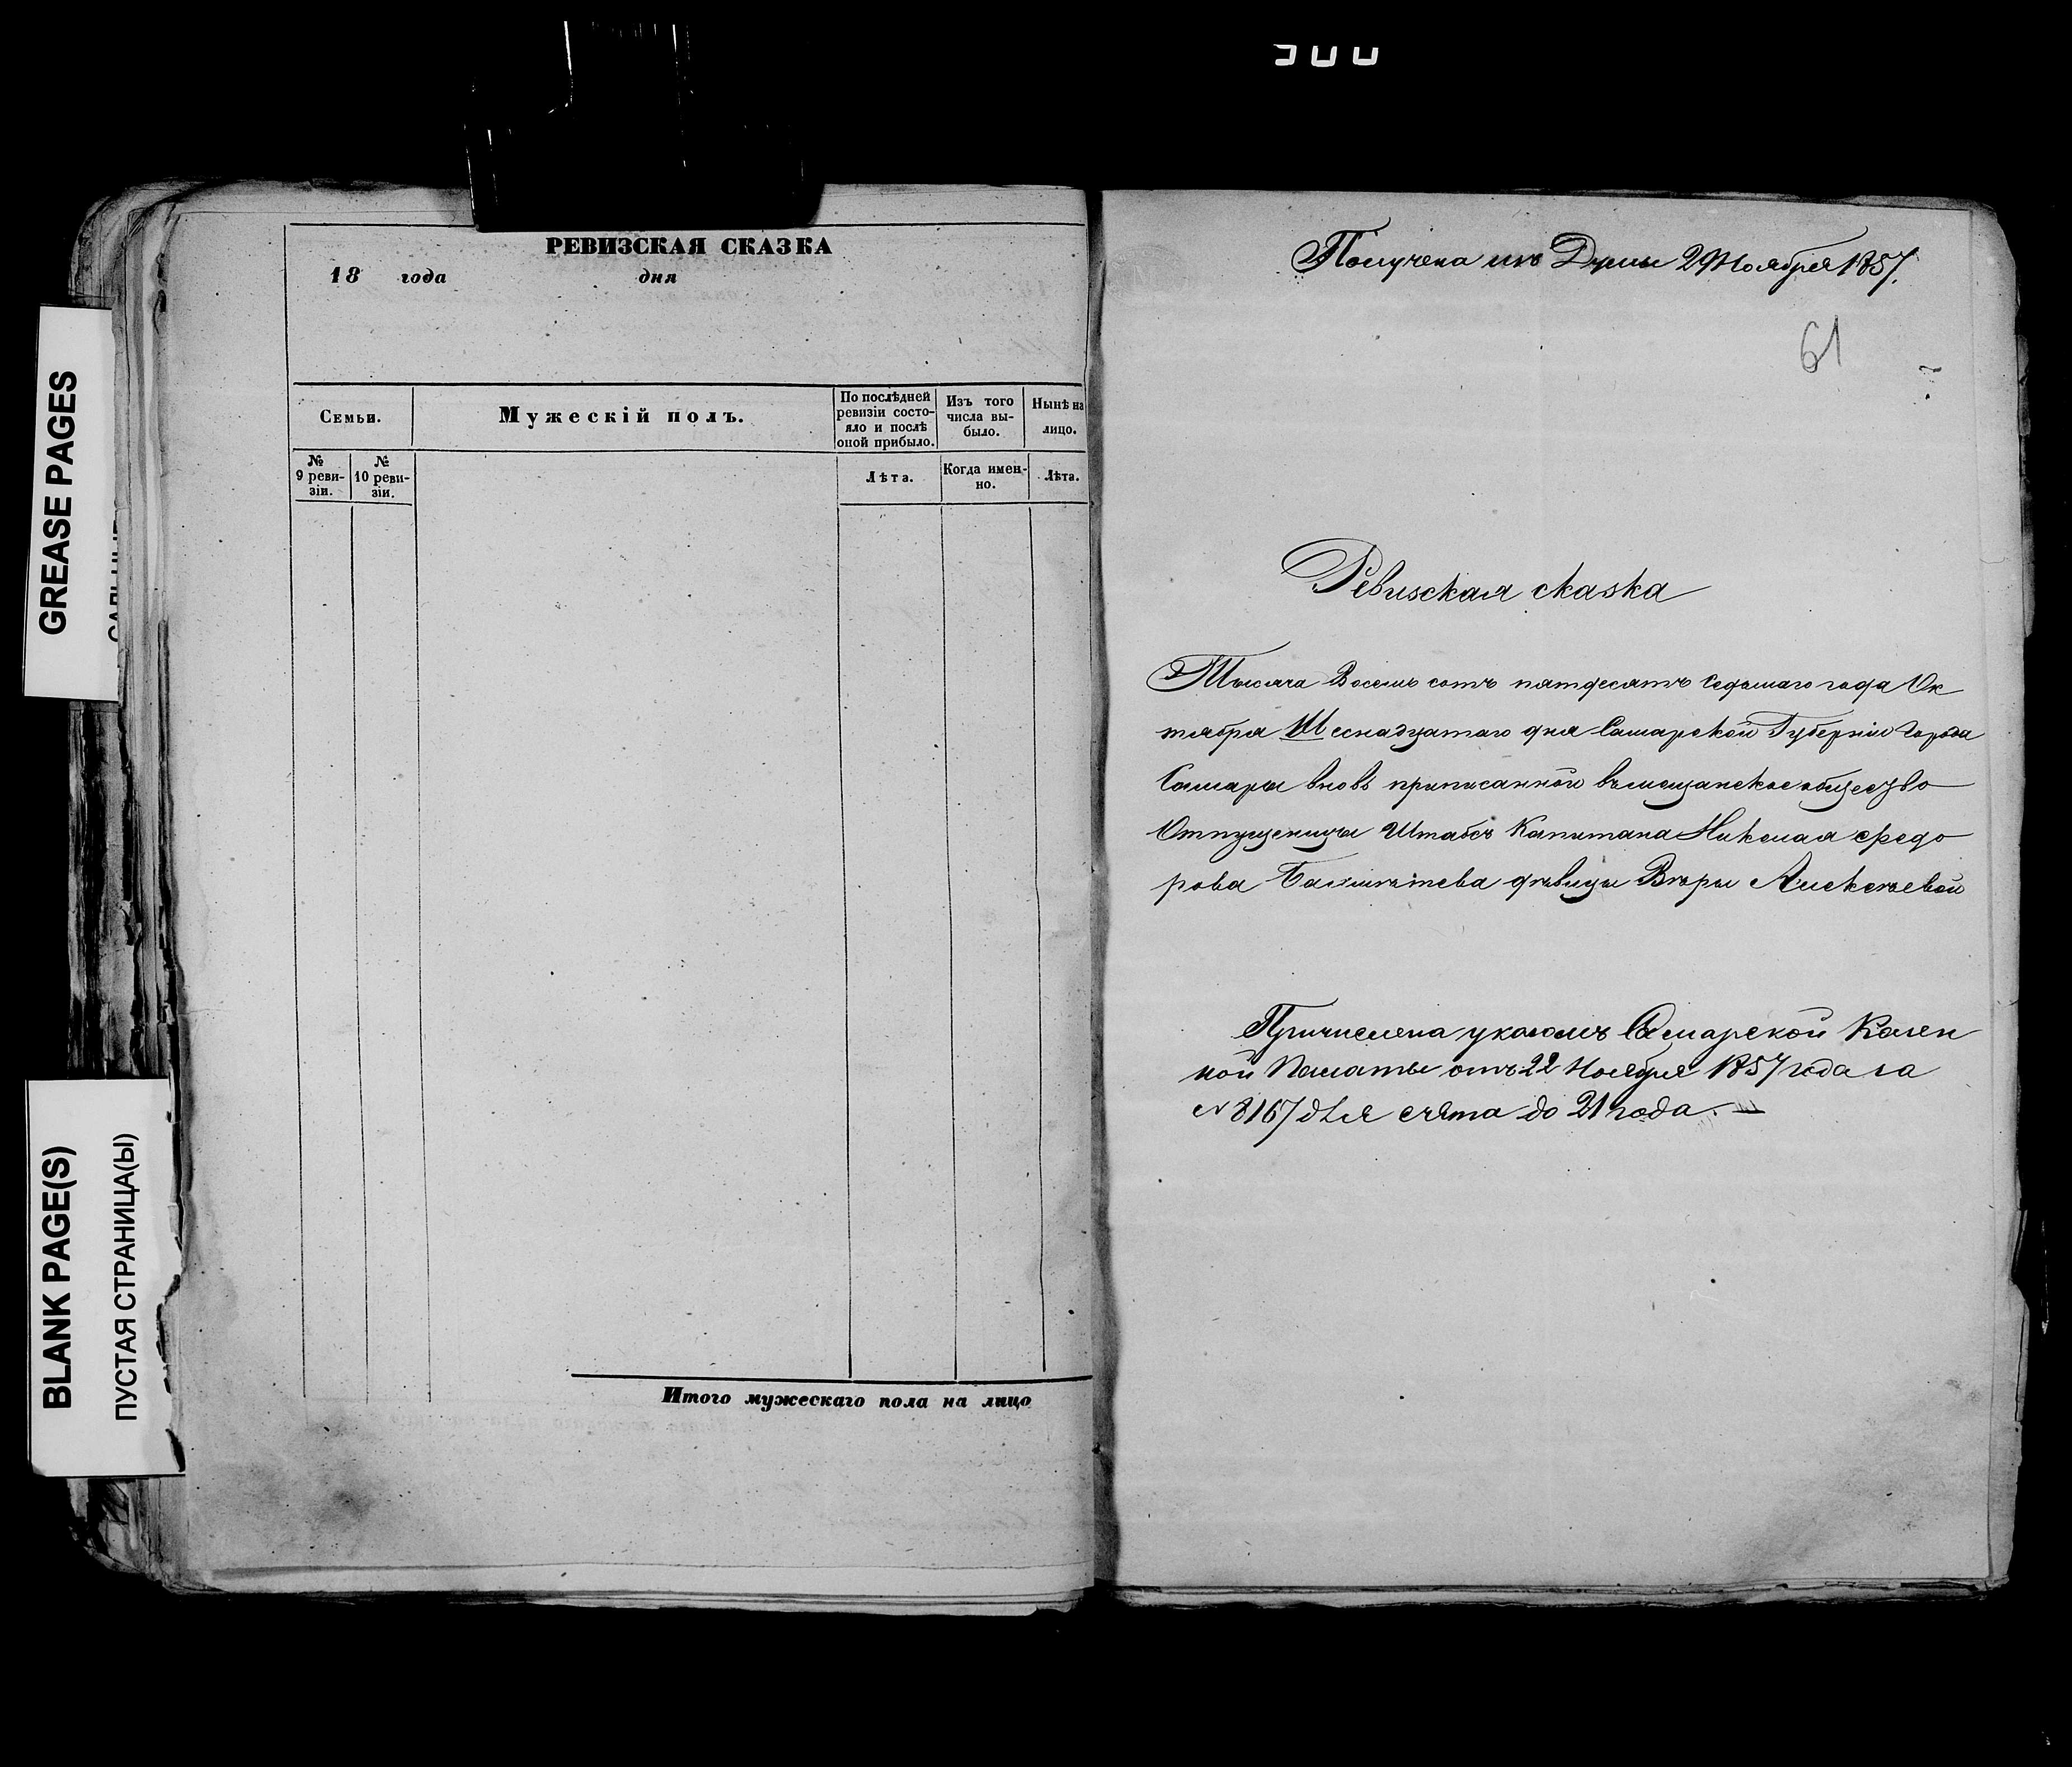 GREASE PAGES
BLANK PAGE(S)
ПУСТАЯ СТРАНИЦА(Ы)
РЕВИЗСКАЯ СКАЗКА
18 года дня
Семьи.
Мужескій полъ.
По послѣдней ревизіи состояло и послѣ оной прибыло.
Изъ того числа выбыло.
Нынѣ на лицо.
№ 9 ревизіи.
№ 10 ревизіи.
Лѣта.
Когда именно.
Лѣта.
Итого мужескаго пола на лицо
Получена изъ Думы 29 Ноября 1857.
61
Ревизская сказка
Тысяча Восемь сотъ пятдесятъ седьмаго года Ок
тября Шеснадцатаго дня Самарской Губерніи города
Самары вновь приписанной въ мещанское общество
Отпущеницы Штабсъ Капитана Николая Федо
рова дѣвицы Вѣры Алексѣевой
Причислена указомъ Самарской Казен
ной Палаты отъ 22 Ноября 1857 года за
№ 8167 для счета до 21 года. —